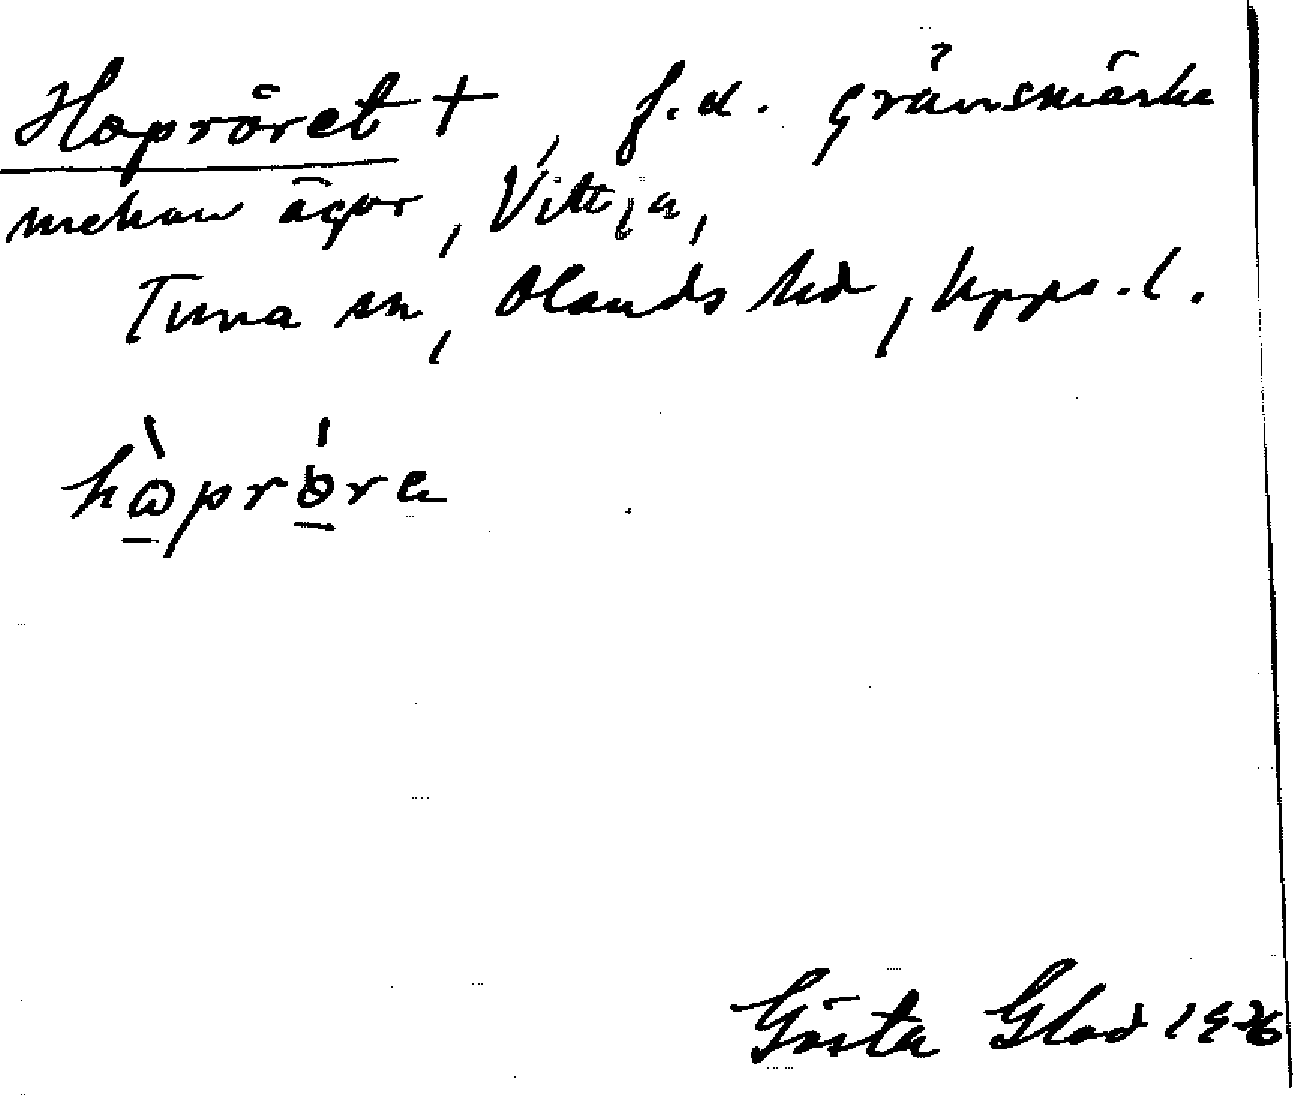 Hopröret +, f.d. gränsmärke
mellan ägor, Vittja,
Tuna sn, Olands hd, Upps. l.
Gösta Glad 1976